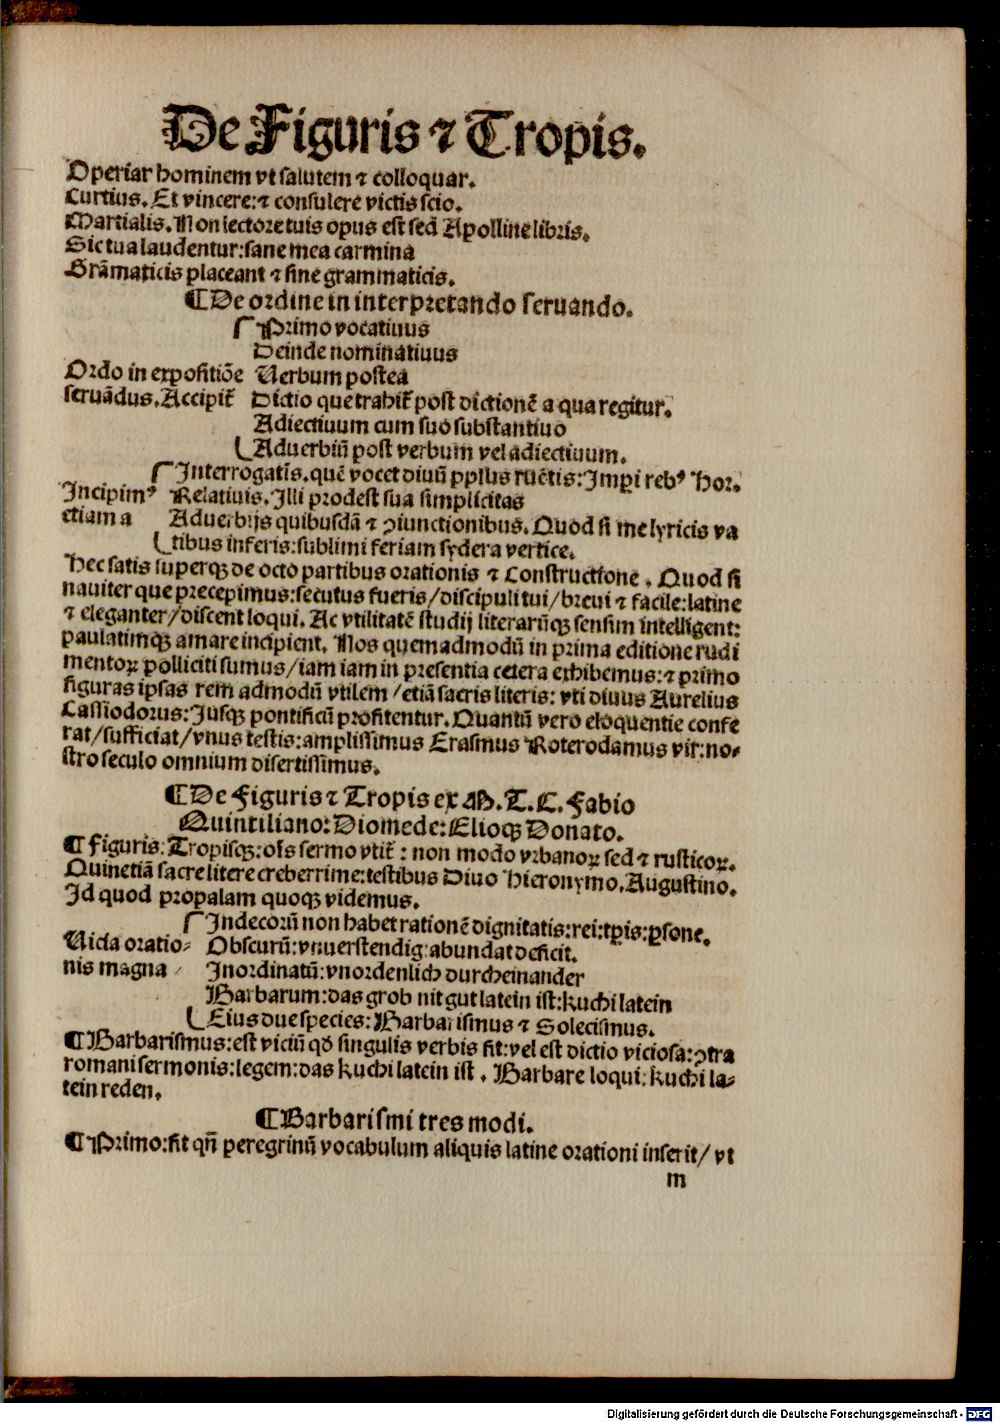 De Figuris ⁊ Tropis.
Operiar hominem vt salutem ⁊ colloquar.
Curtius. Et vincere: ⁊ consulere victis scio.
Martialis. Non lectore tuis opus est sed Apolline libris.
Sic tua laudentur: sane mea carmina
Grāmaticis placeant ⁊ sine grammaticis.
¶De ordine in interpretando seruando.
Primo vocatiuus
Deinde nominatiuus
Ordo in expositiōe Uerbum postea
seruādus. Accipit̄ Dictio que trahit̄ post dictionē a qua regitur.
Adiectiuum cum suo substantiuo
Aduerbiū post verbum vel adiectiuum.
Interrogatis. quē vocet diuū pplus ruētis: Impi rebꝰ Hor.
Incipimꝰ Relatiuis. Illi prodest sua simplicitas
etiam a Aduerbijs quibusdā ⁊ ꝯiunctionibus. Quod si me lyricis va
tibus inferis: sublimi feriam sydera vertice.
Hec satis superqꝫ de octo partibus orationis ⁊ Constructione. Quod si
nauiter que precepimus: secutus fueris/discipuli tui/breui ⁊ facile: latine
⁊ eleganter/discent loqui. Ac vtilitatē studij literarūqꝫ sensim intelligent:
paulatimqꝫ amare incipient. Nos quemadmodū in prima editione rudi
mentoꝝ polliciti sumus/iam iam in presentia cetera exhibemus: ⁊ primo
figuras ipsas rem admodū vtilem/etiā sacris literis: vti diuus Aurelius
Cassiodorus: Jusqꝫ pontificū profitentur. Quantū vero eloquentie confe
rat/sufficiat/vnus testis: amplissimus Erasmus Roterodamus vir: no-
stro seculo omnium disertissimus.
¶De Figuris ⁊ Tropis ex M. T. C. Fabio
Quintiliano: Diomede: Elioqꝫ Donato.
¶ Figuris: Tropisqꝫ: oīs sermo vtit̄: non modo vrbanoꝝ sed ⁊ rusticoꝝ.
Quinetiā sacre litere creberrime: testibus Diuo Hieronymo. Augustino.
Id quod propalam quoqꝫ videmus.
Indecorū non habet rationē dignitatis: rei: tꝑis: ꝑsone.
Uicia oratio- Obscurū: vnuerstendig: abundat deficit.
nis magna Inordinatū: vnordenlich durcheinander
Barbarum: das grob nit gut latein ist: kuchi latein
Eius due species: Barbarismus ⁊ Solecismus.
¶Barbarismus: est viciū qđ singulis verbis fit: vel est dictio viciosa: ꝯtra
romani sermonis: legem: das kuchi latein ist. Barbare loqui: kuchi la-
tein reden.
¶Barbarismi tres modi.
¶Primo: fit qn̄ peregrinū vocabulum aliquis latine orationi inserit/ vt
m
Digitalisierung gefördert durch die Deutsche Forschungsgemeinschaft - DFG